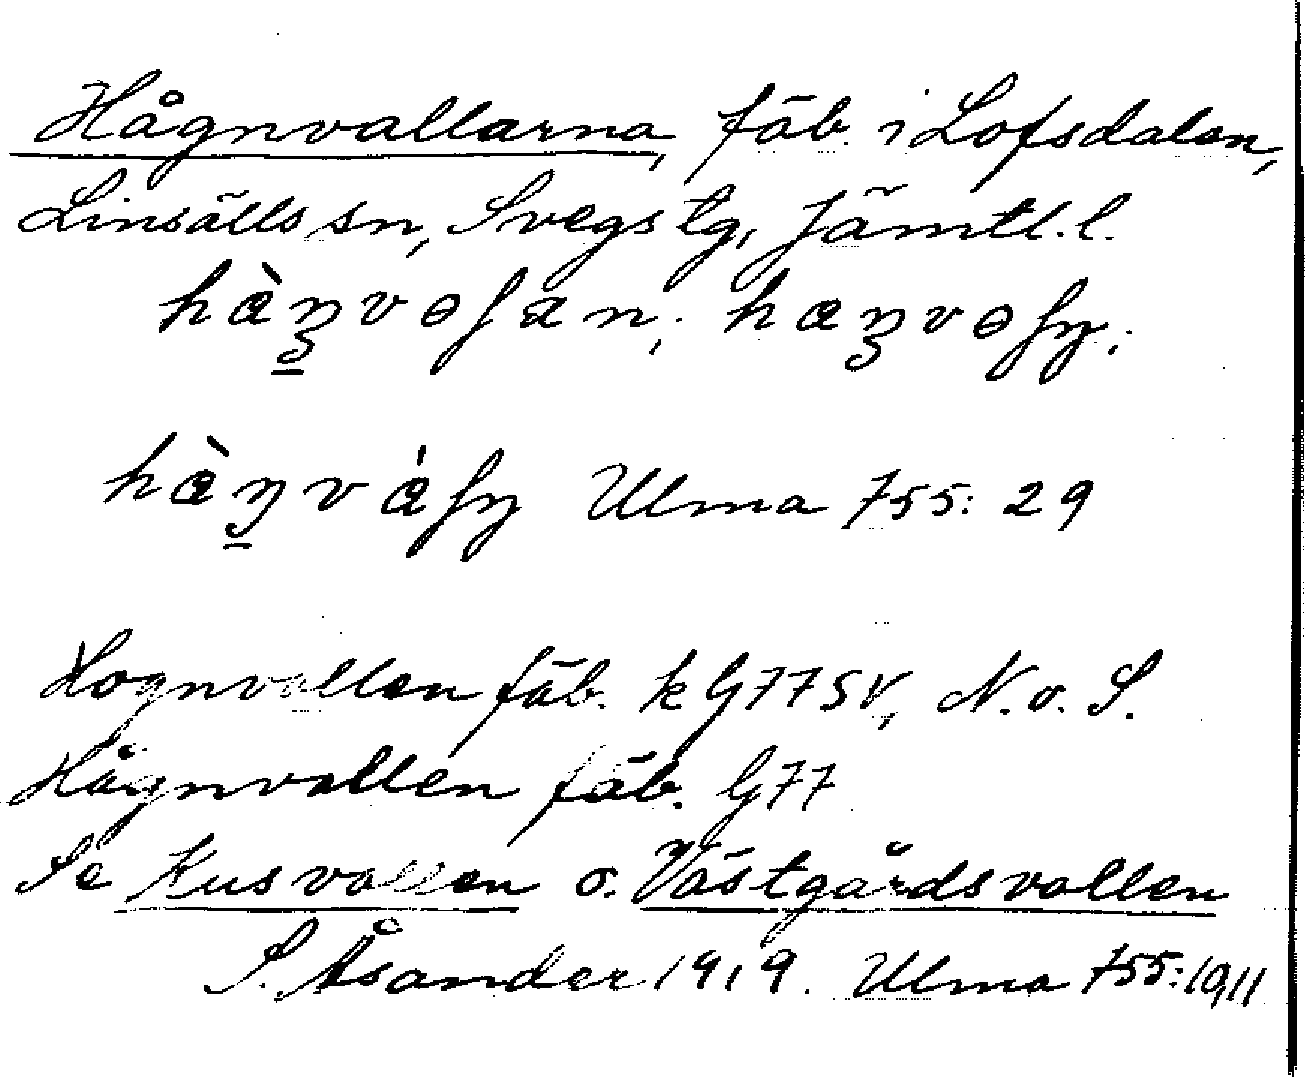 Hågnvallarna, fäb. i Lofsdalen,
Linsälls sn, Svegs tg, Jämtl. l.
hæ̀ŋvɵʃan; hæŋvɵʃn̥;
hæ̀ŋvæ̍ʃn̥ Ulma 755: 29
Hognvallen fäb. k G77SV, N. o. S.
Hågnvallen fäb. G77
Se Kusvallen o. Västgårdsvallen
S. Åsander 1919. Ulma 755:10,11